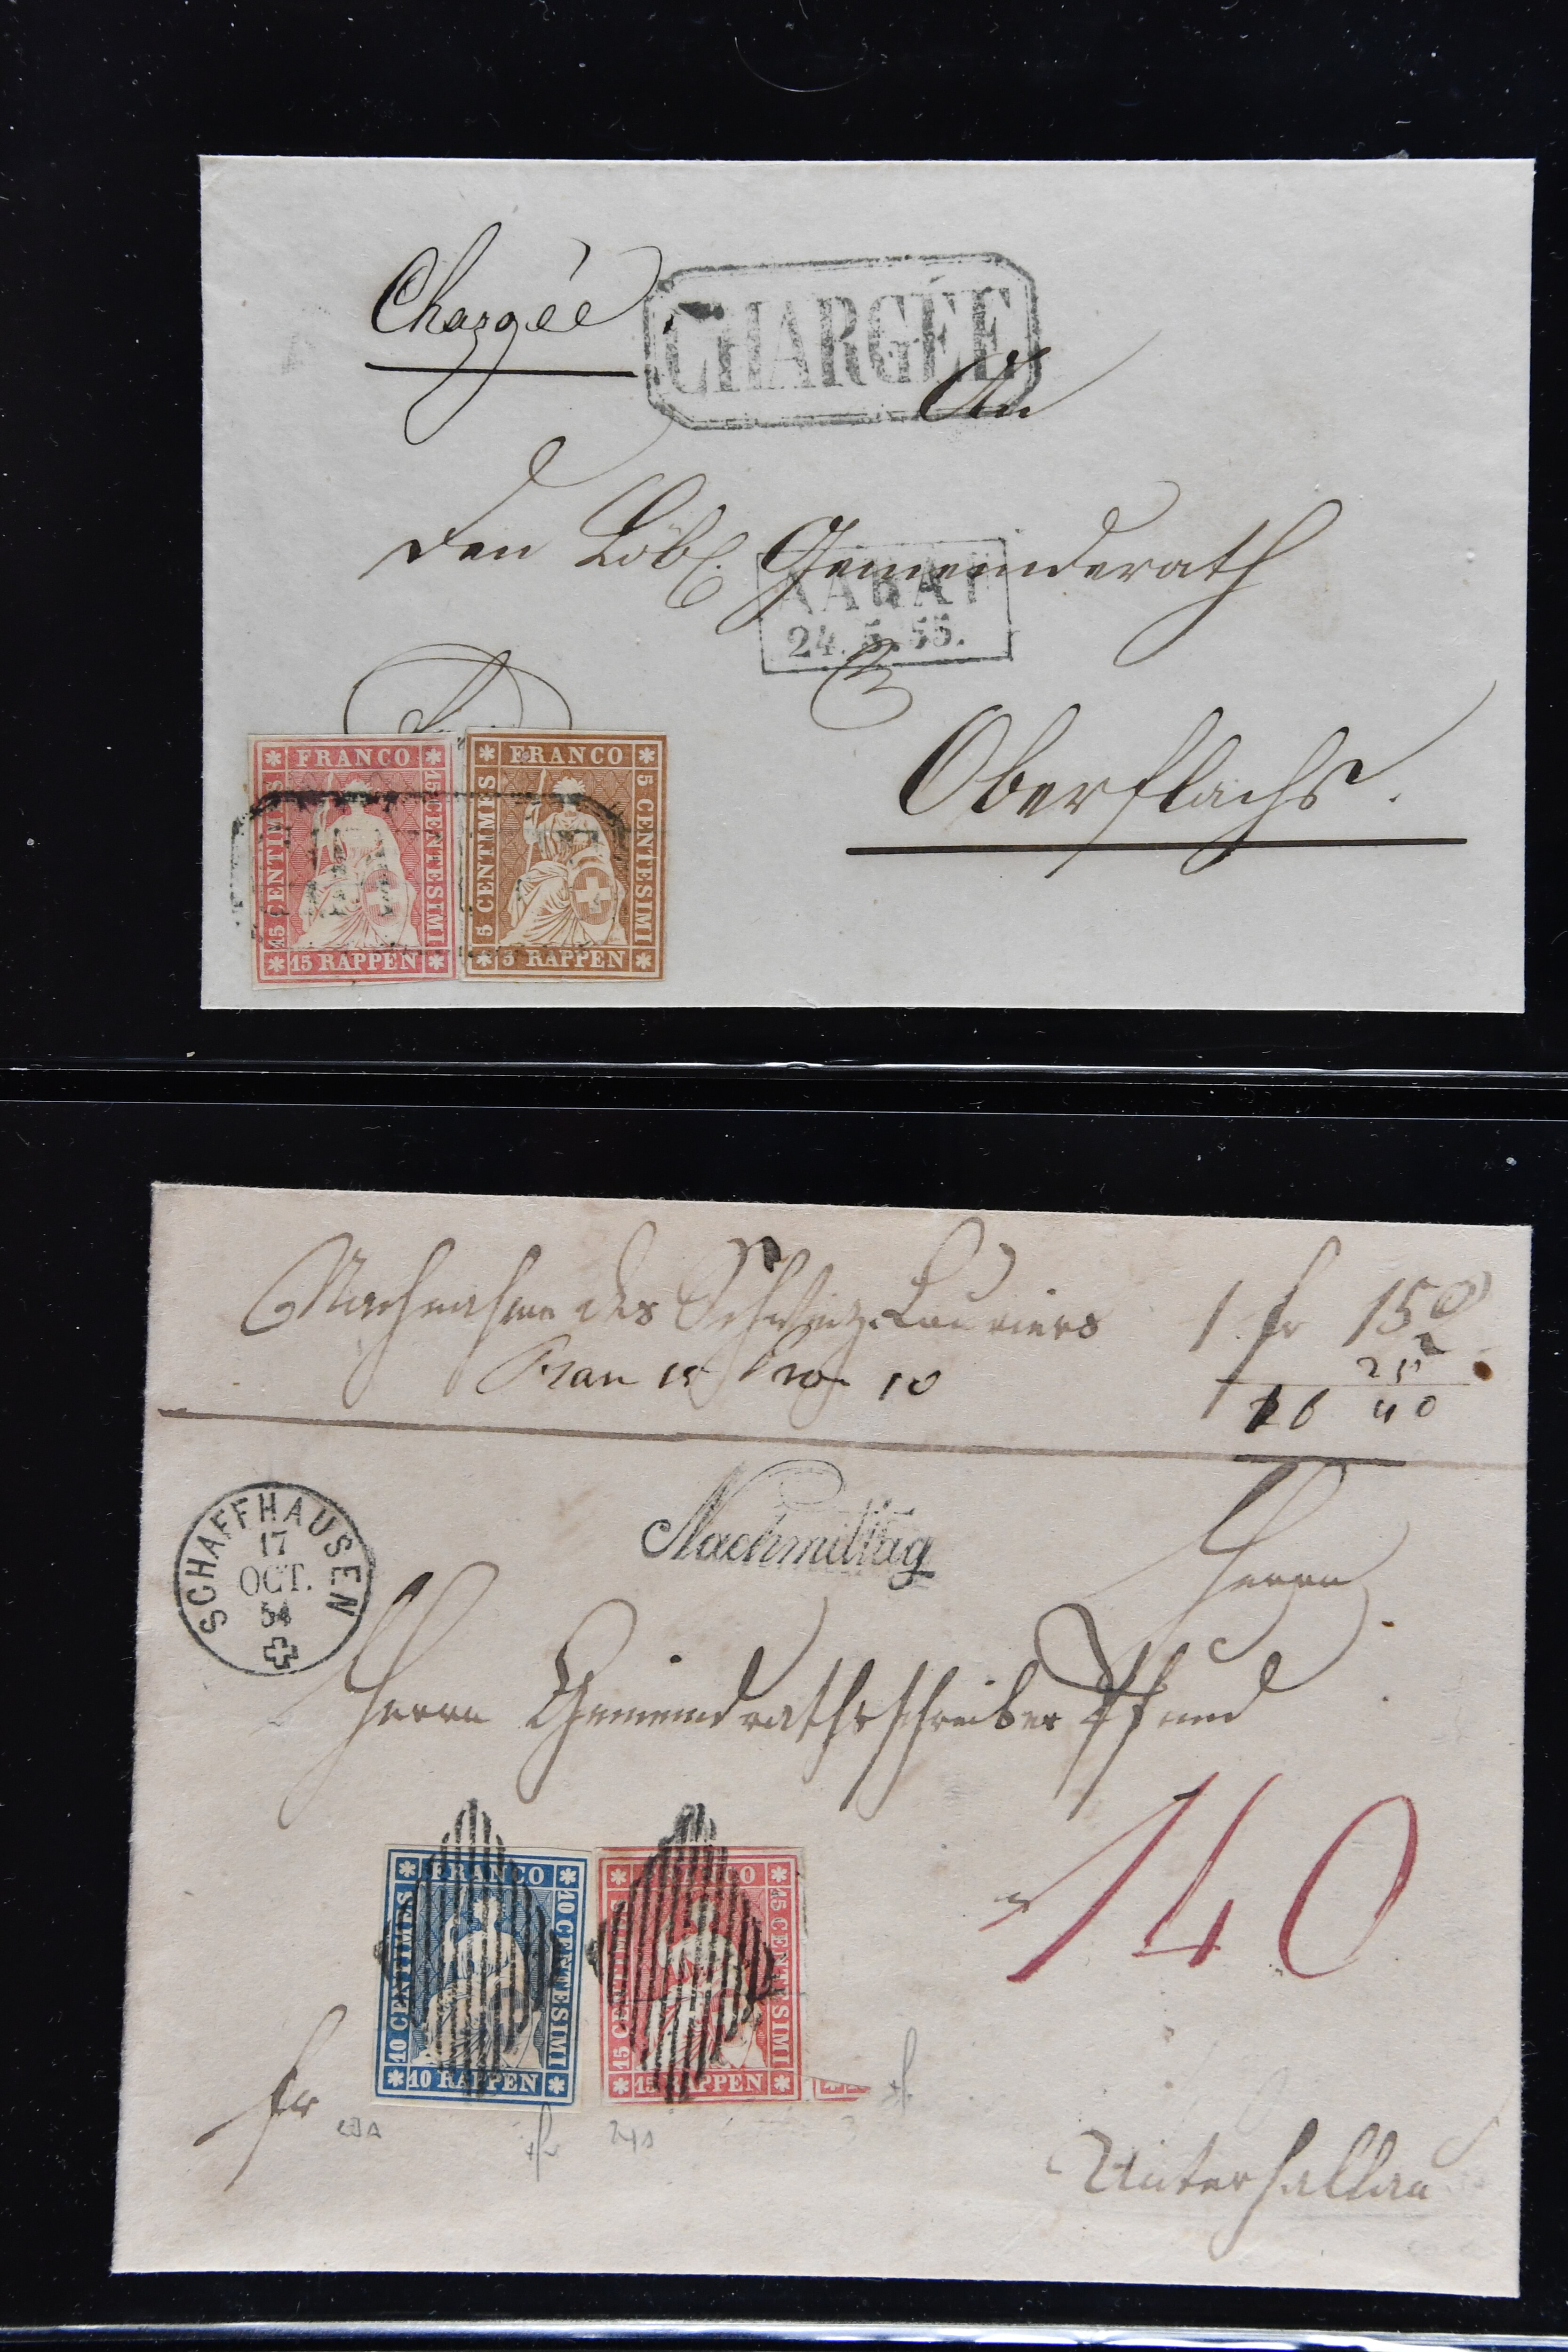 Chargée.
CHARGÉE
An
den Löbl. Gemeinderath
AARAU
24. 5. 55.
Oberflachs.
FRANCO
15 CENTIMES
15 CENTESIMI
15 RAPPEN
FRANCO
5 CENTIMES
5 CENTESIMI
5 RAPPEN
Nachnahme des Schweiz. Couriers 1 fr 15
25
10
40
SCHAFFHAUSEN
17
OCT.
54
Nachmittag
Herrn
Herrn Gemeindrathsschreiber Pfund
140
FRANCO
10 CENTIMES
10 CENTESIMI
10 RAPPEN
FRANCO
15 CENTIMES
15 CENTESIMI
15 RAPPEN
fr
Unterhallau